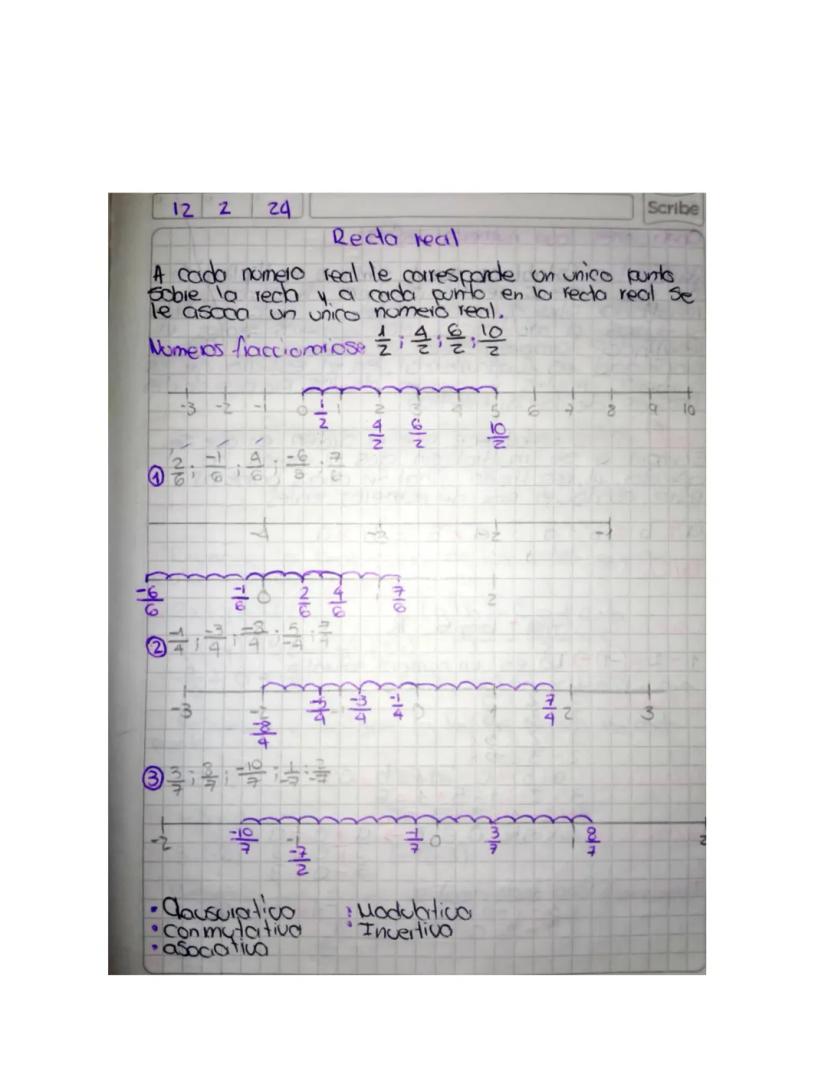 12 2 24 Scribe
Recta real
A cada numero real le corresponde un unico punto
sobre la recta y a cada punto en la recta real se
le asoca un unico numero real.
Numeros fraccionariose 1/2 ; 4/2 ; 6/2 ; 10/2
-3 -2 -1 0 1 2 3 4 5 6 7 8 9 10
1/2 4/2 6/2 10/2
① 2/6 ; -1/6 ; 4/6 ; 7/6
-6/6 -1/6 0 2/6 4/6 1 7/6 2
② -1/4 ; -3/4 ; 5/-4
-3 -2 -3/4 -1/4 0 1 7/4 2 3
-8/4
③ 3/7 ; 8/7 ; -10/7 ; 1/-7
-2 -10/7 -1 -1/7 0 3/7 1 8/7 2
-7/2
• Clausurativa : Modulativa
• conmutativa : Invertivo
• asociativa